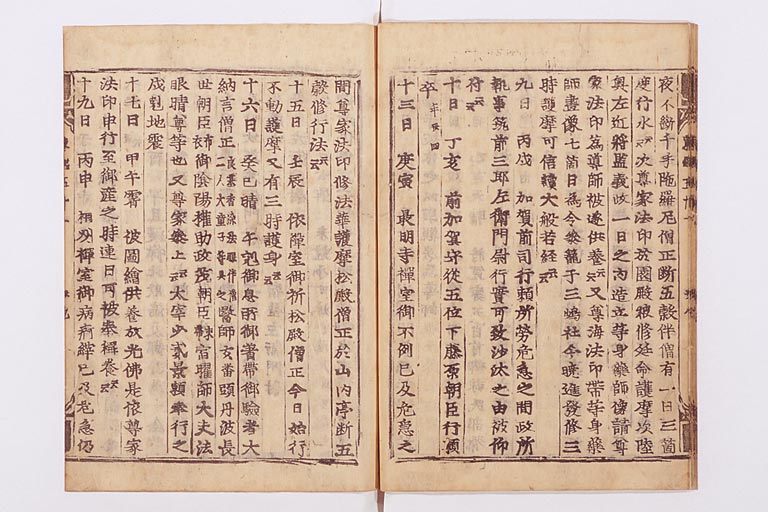 夜不斷千手陁羅尼僧正断五穀伴僧有一日三箇
度行水云云次尊家法印於園殿被修延命護摩次陸
奥左近將監義政一日之内造立等身藥師像請尊
家法印為導師被遂供養云云又尊海法印帯等身藥
師畫像七箇日為令參籠于三嶋社今曉進發修三
時護摩可信讀大般若經云云
九日 丙戌 加賀前司行頼所勞危急之間政所
執事筑前三郎左衛門尉行實可致沙汰之由被仰
付云云
十日 丁亥 前加賀守從五位下藤原朝臣行頼
卒 年卅四
十三日 庚寅 最明寺禪室御不例已及危急之
間尊家法印修法華護摩松殿僧正於山内亭断五
穀修行法云云
十五日 壬辰 依禪室御祈松殿僧正今日始行
不動護摩又有三時護身云云
十六日 癸巳晴 午剋御息所御著帶御驗者大
納言僧正 醫師女番頭丹波長
世朝臣 御陰陽權助政茂朝臣 宿曜師大夫法
眼晴尊等也又尊家參上云云太宰少貳景頼奉行之
戌剋地震
十七日 甲午霽 被圖繪供養放光佛是依尊家
法印申行至御産之時連日可被奉稱養云云
十九日 丙申 相州禪室御病痾縡已及危急仍